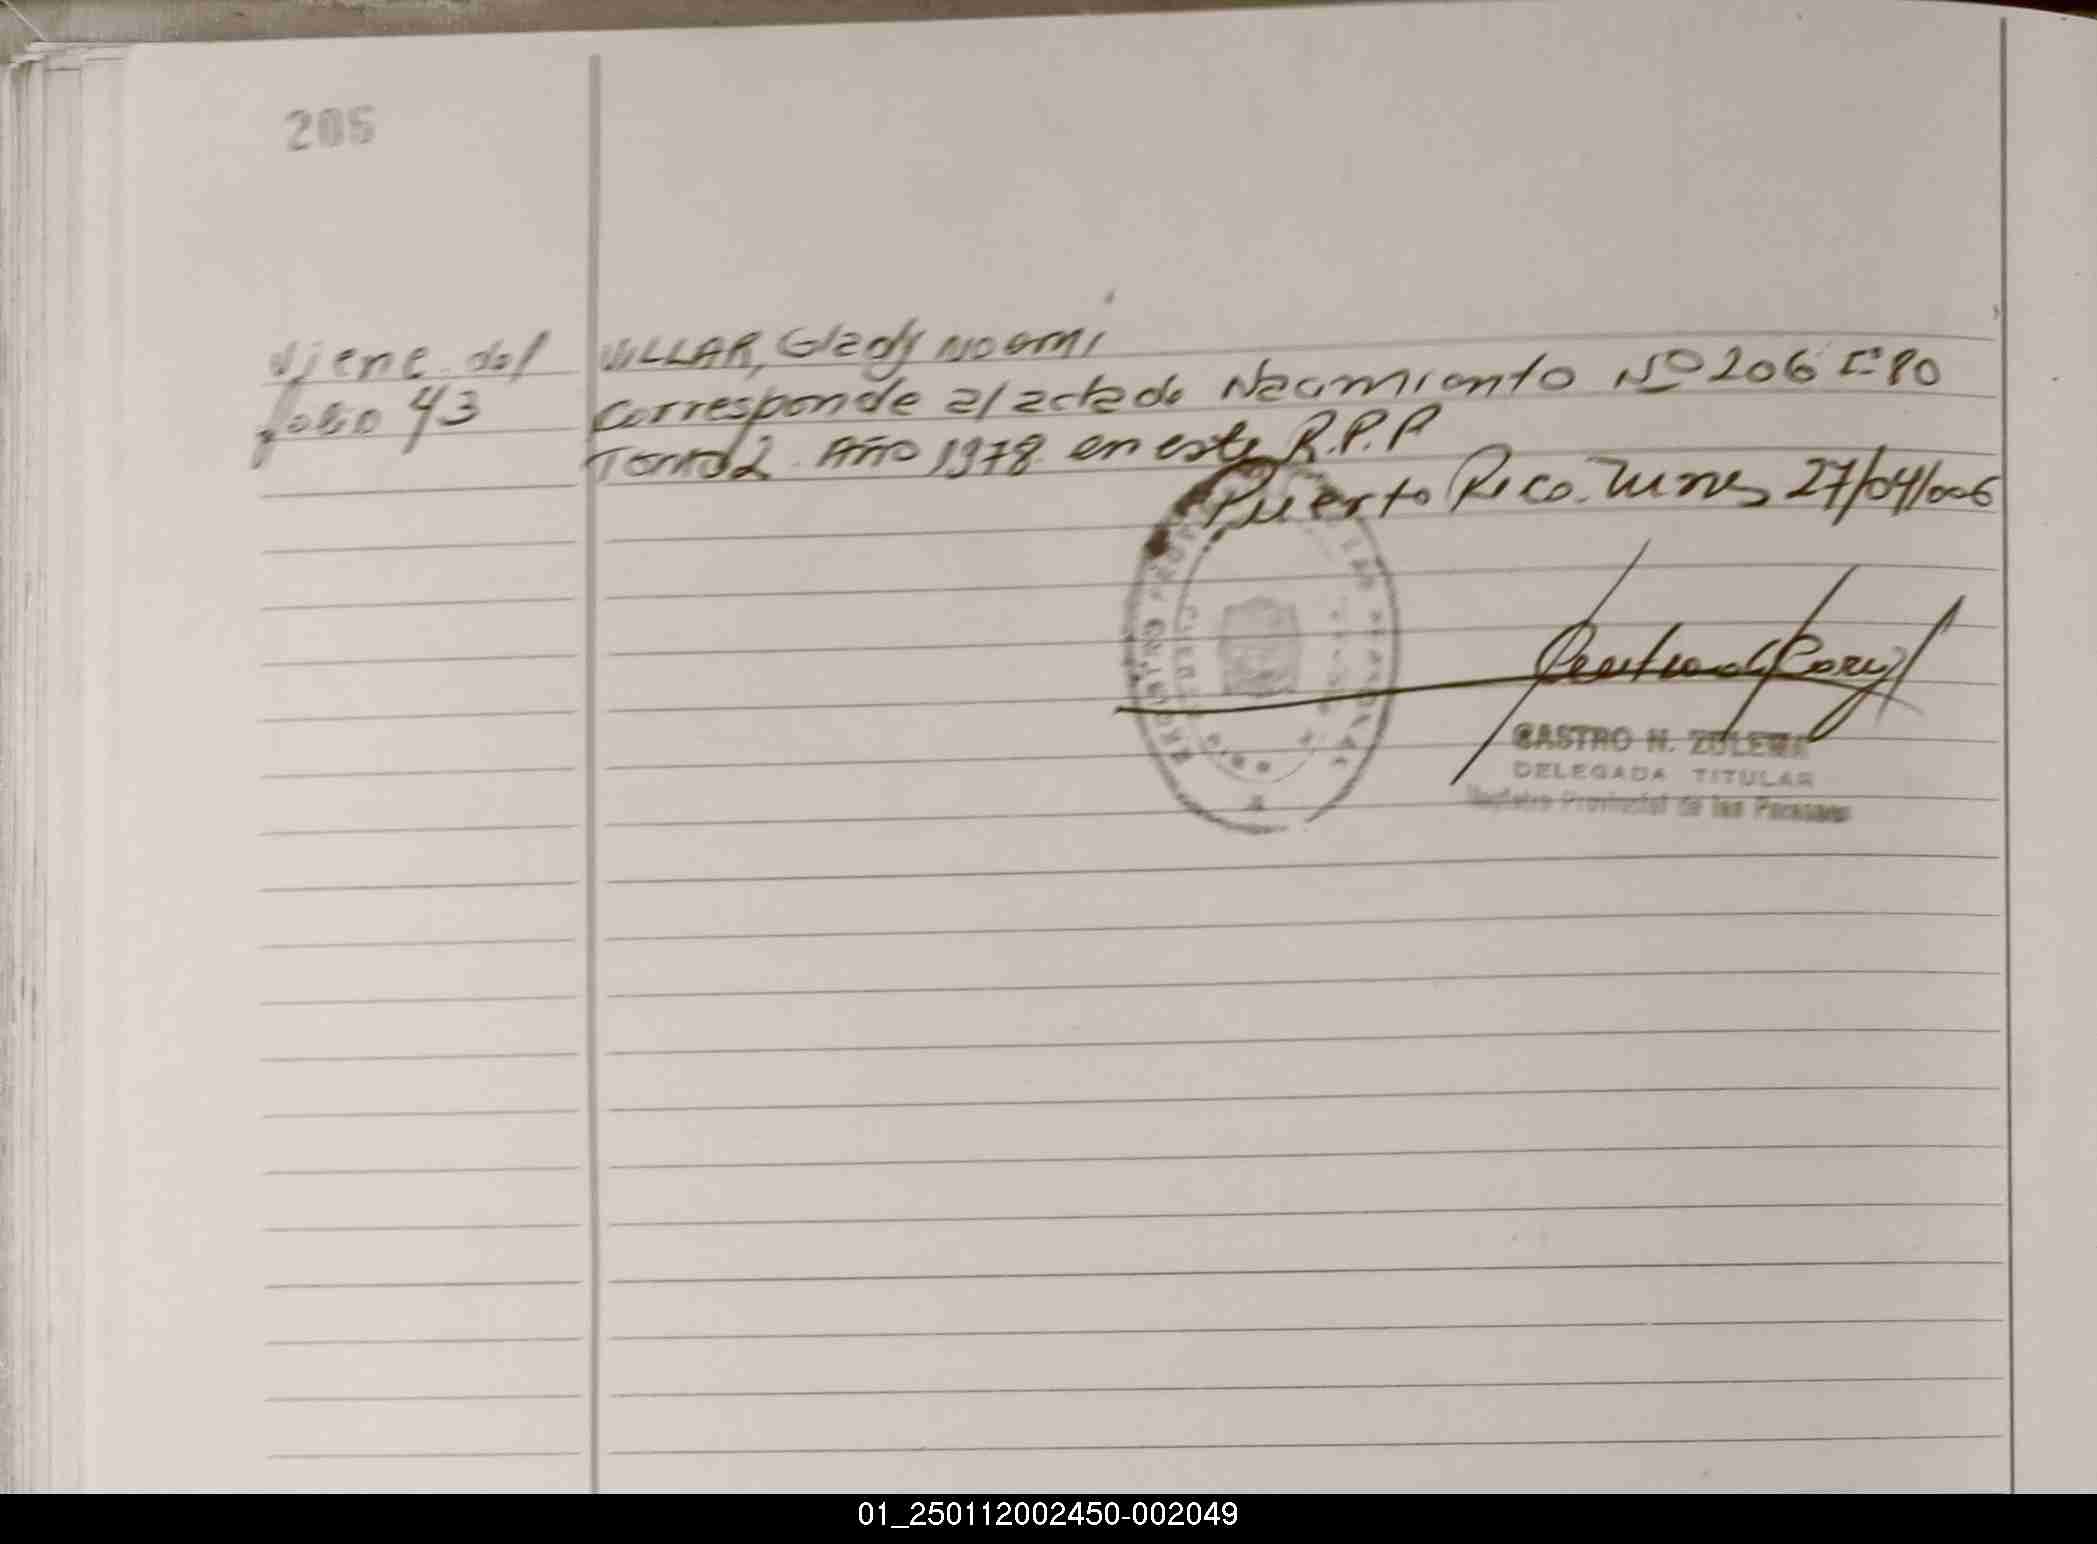 205
Viene del
folio 43
VILLAR, Gladys Noemi
Corresponde al acta de Nacimiento Nº 206 Fº 80
Tomo 2 Año 1978 en este R.P.P
Puerto Rico. Mnes 27/04/006
CASTRO N. ZULEMA
DELEGADA TITULAR
Registro Provincial de las Personas
01_250112002450-002049